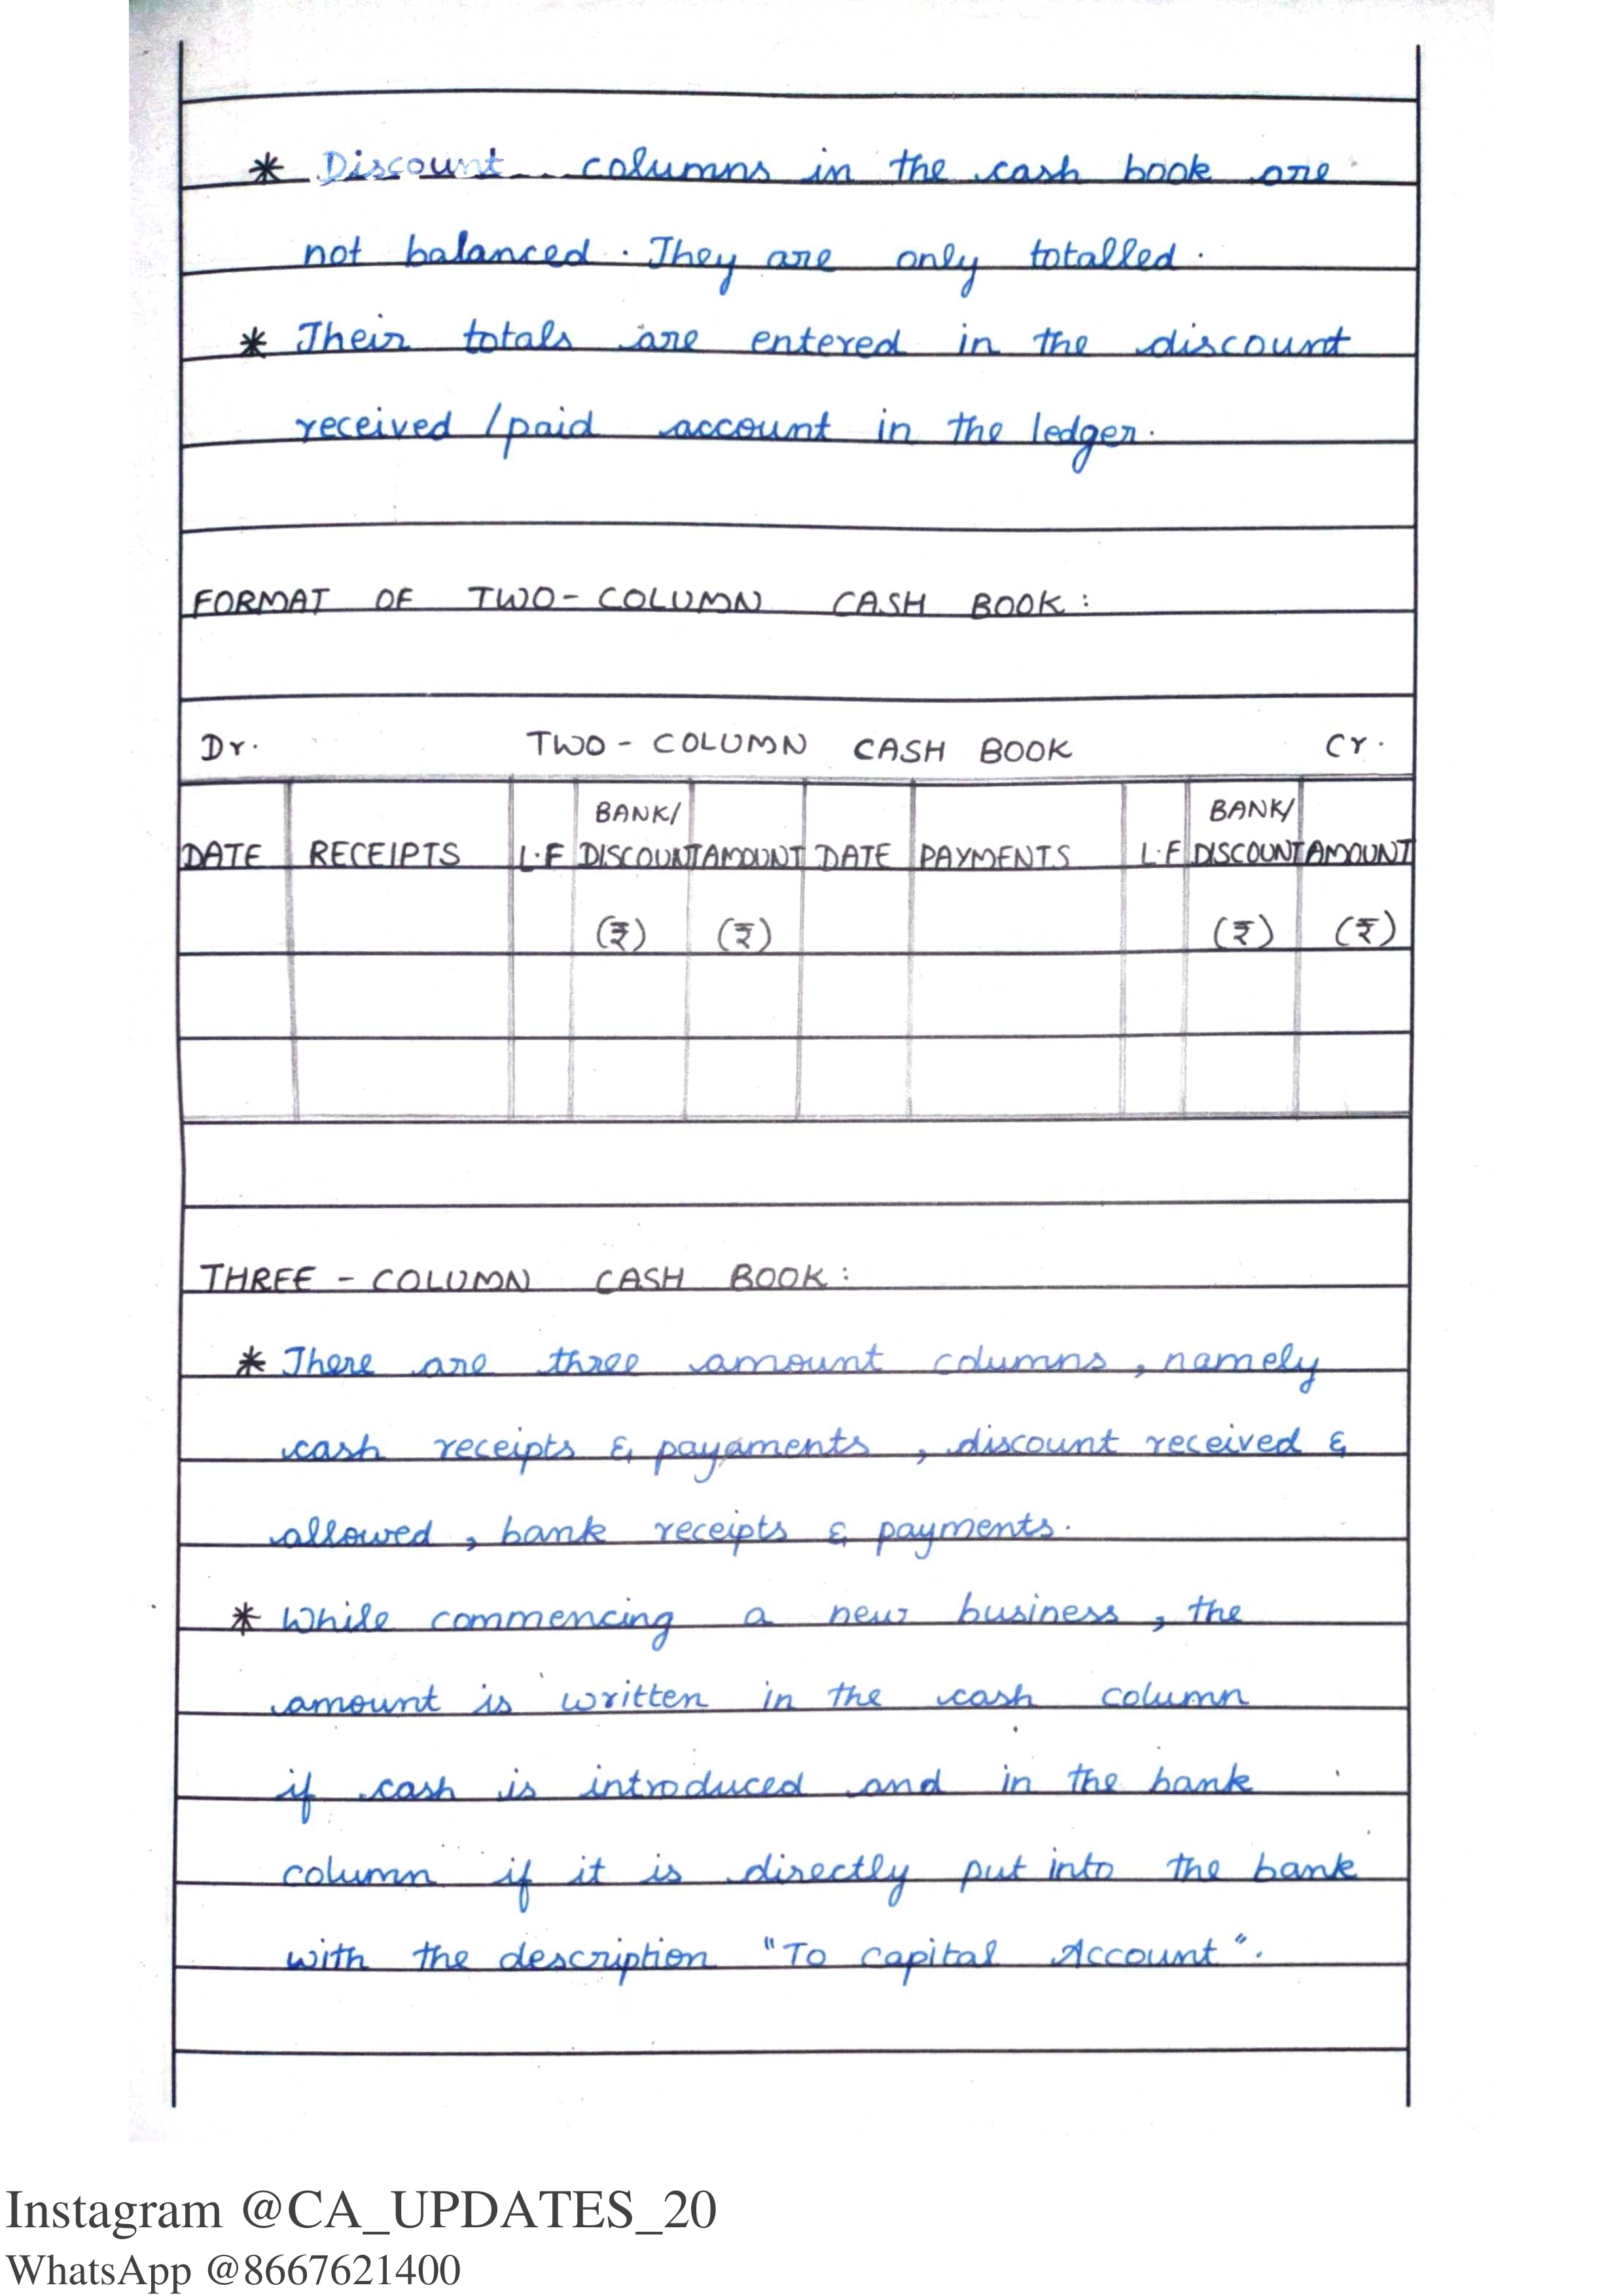 * Discount columns in the cash book are
not balanced. They are only totalled.
* Their totals are entered in the discount
received /paid account in the ledger.
FORMAT OF TWO-COLUMN CASH BOOK:
Dr. TWO-COLUMN CASH BOOK Cr.
BANK/ BANK/
DATE RECEIPTS L.F DISCOUNT AMOUNT DATE PAYMENTS L.F DISCOUNT AMOUNT
(₹) (₹) (₹) (₹)
THREE-COLUMN CASH BOOK:
* There are three amount columns, namely
cash receipts & payaments, discount received &
allowed, bank receipts & payments.
* While commencing a new business, the
amount is written in the cash column
if cash is introduced and in the bank
column if it is directly put into the bank
with the description "To capital Account".
Instagram @CA_UPDATES_20
WhatsApp @8667621400